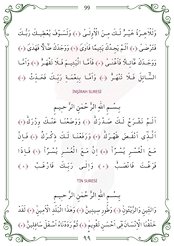 99
وَلَلْاٰخِرَةُ خَيْرٌ لَكَ مِنَ الْاُو۫لٰىۜ ﴿٤﴾ وَلَسَوْفَ يُعْط۪يكَ رَبُّكَ
فَتَرْضٰىۜ ﴿٥﴾ اَلَمْ يَجِدْكَ يَت۪يمًا فَاٰوٰىۖ ﴿٦﴾ وَوَجَدَكَ ضَٓالًّا فَهَدٰىۖ ﴿٧﴾
وَوَجَدَكَ عَٓائِلًا فَاَغْنٰىۜ ﴿٨﴾ فَاَمَّا الْيَت۪يمَ فَلَا تَقْهَرْۜ ﴿٩﴾ وَاَمَّا
السَّٓائِلَ فَلَا تَنْهَرْۜ ﴿١٠﴾ وَاَمَّا بِنِعْمَةِ رَبِّكَ فَحَدِّثْ ﴿١١﴾
İNŞİRAH SURESİ
بِسْمِ اللّٰهِ الرَّحْمٰنِ الرَّح۪يمِ
اَلَمْ نَشْرَحْ لَكَ صَدْرَكَۙ ﴿١﴾ وَوَضَعْنَا عَنْكَ وِزْرَكَۙ ﴿٢﴾
اَلَّذ۪ٓي اَنْقَضَ ظَهْرَكَۙ ﴿٣﴾ وَرَفَعْنَا لَكَ ذِكْرَكَۜ ﴿٤﴾ فَاِنَّ مَعَ
الْعُسْرِ يُسْرًاۙ ﴿٥﴾ اِنَّ مَعَ الْعُسْرِ يُسْرًاۜ ﴿٦﴾ فَاِذَا
فَرَغْتَ فَانْصَبْۙ ﴿٧﴾ وَاِلٰى رَبِّكَ فَارْغَبْ ﴿٨﴾
TİN SURESİ
بِسْمِ اللّٰهِ الرَّحْمٰنِ الرَّح۪يمِ
وَالتّ۪ينِ وَالزَّيْتُونِۙ ﴿١﴾ وَطُورِ س۪ين۪ينَۙ ﴿٢﴾ وَهٰذَا الْبَلَدِ الْاَم۪ينِۙ ﴿٣﴾ لَقَدْ
خَلَقْنَا الْاِنْسَانَ ف۪ٓي اَحْسَنِ تَقْو۪يمٍۘ ﴿٤﴾ ثُمَّ رَدَدْنَاهُ اَسْفَلَ سَافِل۪ينَۙ ﴿٥﴾
٩٩